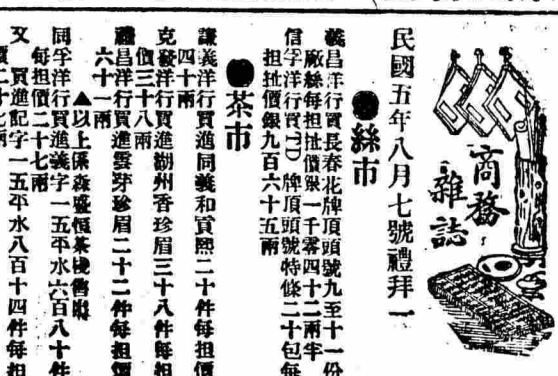 商務
雜誌
民國五年八月七號禮拜一
●絲市
義昌洋行買長春花牌頂頭號九至十一份
廠絲每担扯價銀一千零四十二兩半
信孚洋行買TD牌頂頭號特條二十包每
担扯價銀九百六十五兩
●茶市
謙義洋行買進同義和貢熙二十件每担價
四十兩
克毅洋行買進湖州香珍眉三十八件每担
價三十八兩
禮昌洋行買進雲芽珍眉二十二件每担價
六十一兩
▲以上係森盛恒茶棧售出
同孚洋行買進義字一五平水六百八十件
每担價二十七兩
又 買進記字一五平水八百十四件每担
價二十七兩